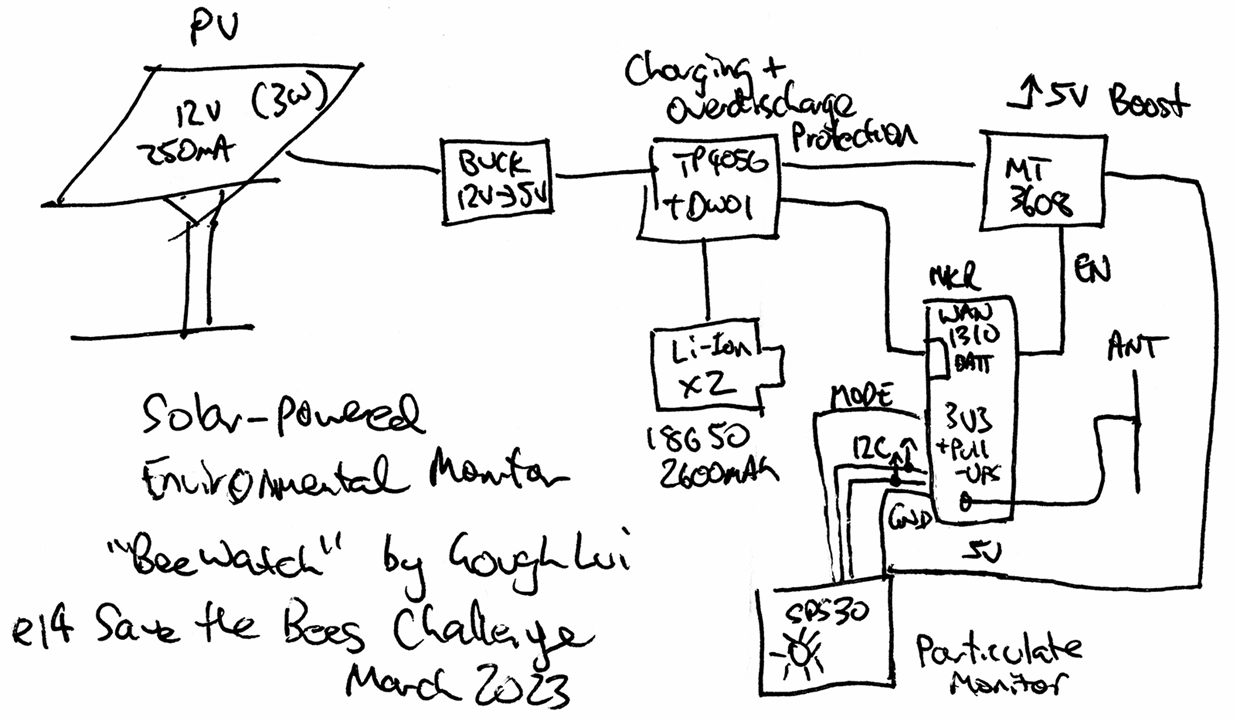 PV
12V (3W)
250mA
BUCK
12V→5V
Charging +
Overdischarge
Protection
TP4056
+DW01
↑5V Boost
MT
3608
EN
Li-Ion
x2
18650
2600mAh
MKR
WAN
1310
BATT
3V3
+Pull
-UPS
ANT
MODE
I2C
GND
5V
SPS30
Particulate
Monitor
Solar-Powered
Environmental Monitor
"BeeWatch" by Gough Lui
e14 Save the Bees Challenge
March 2023